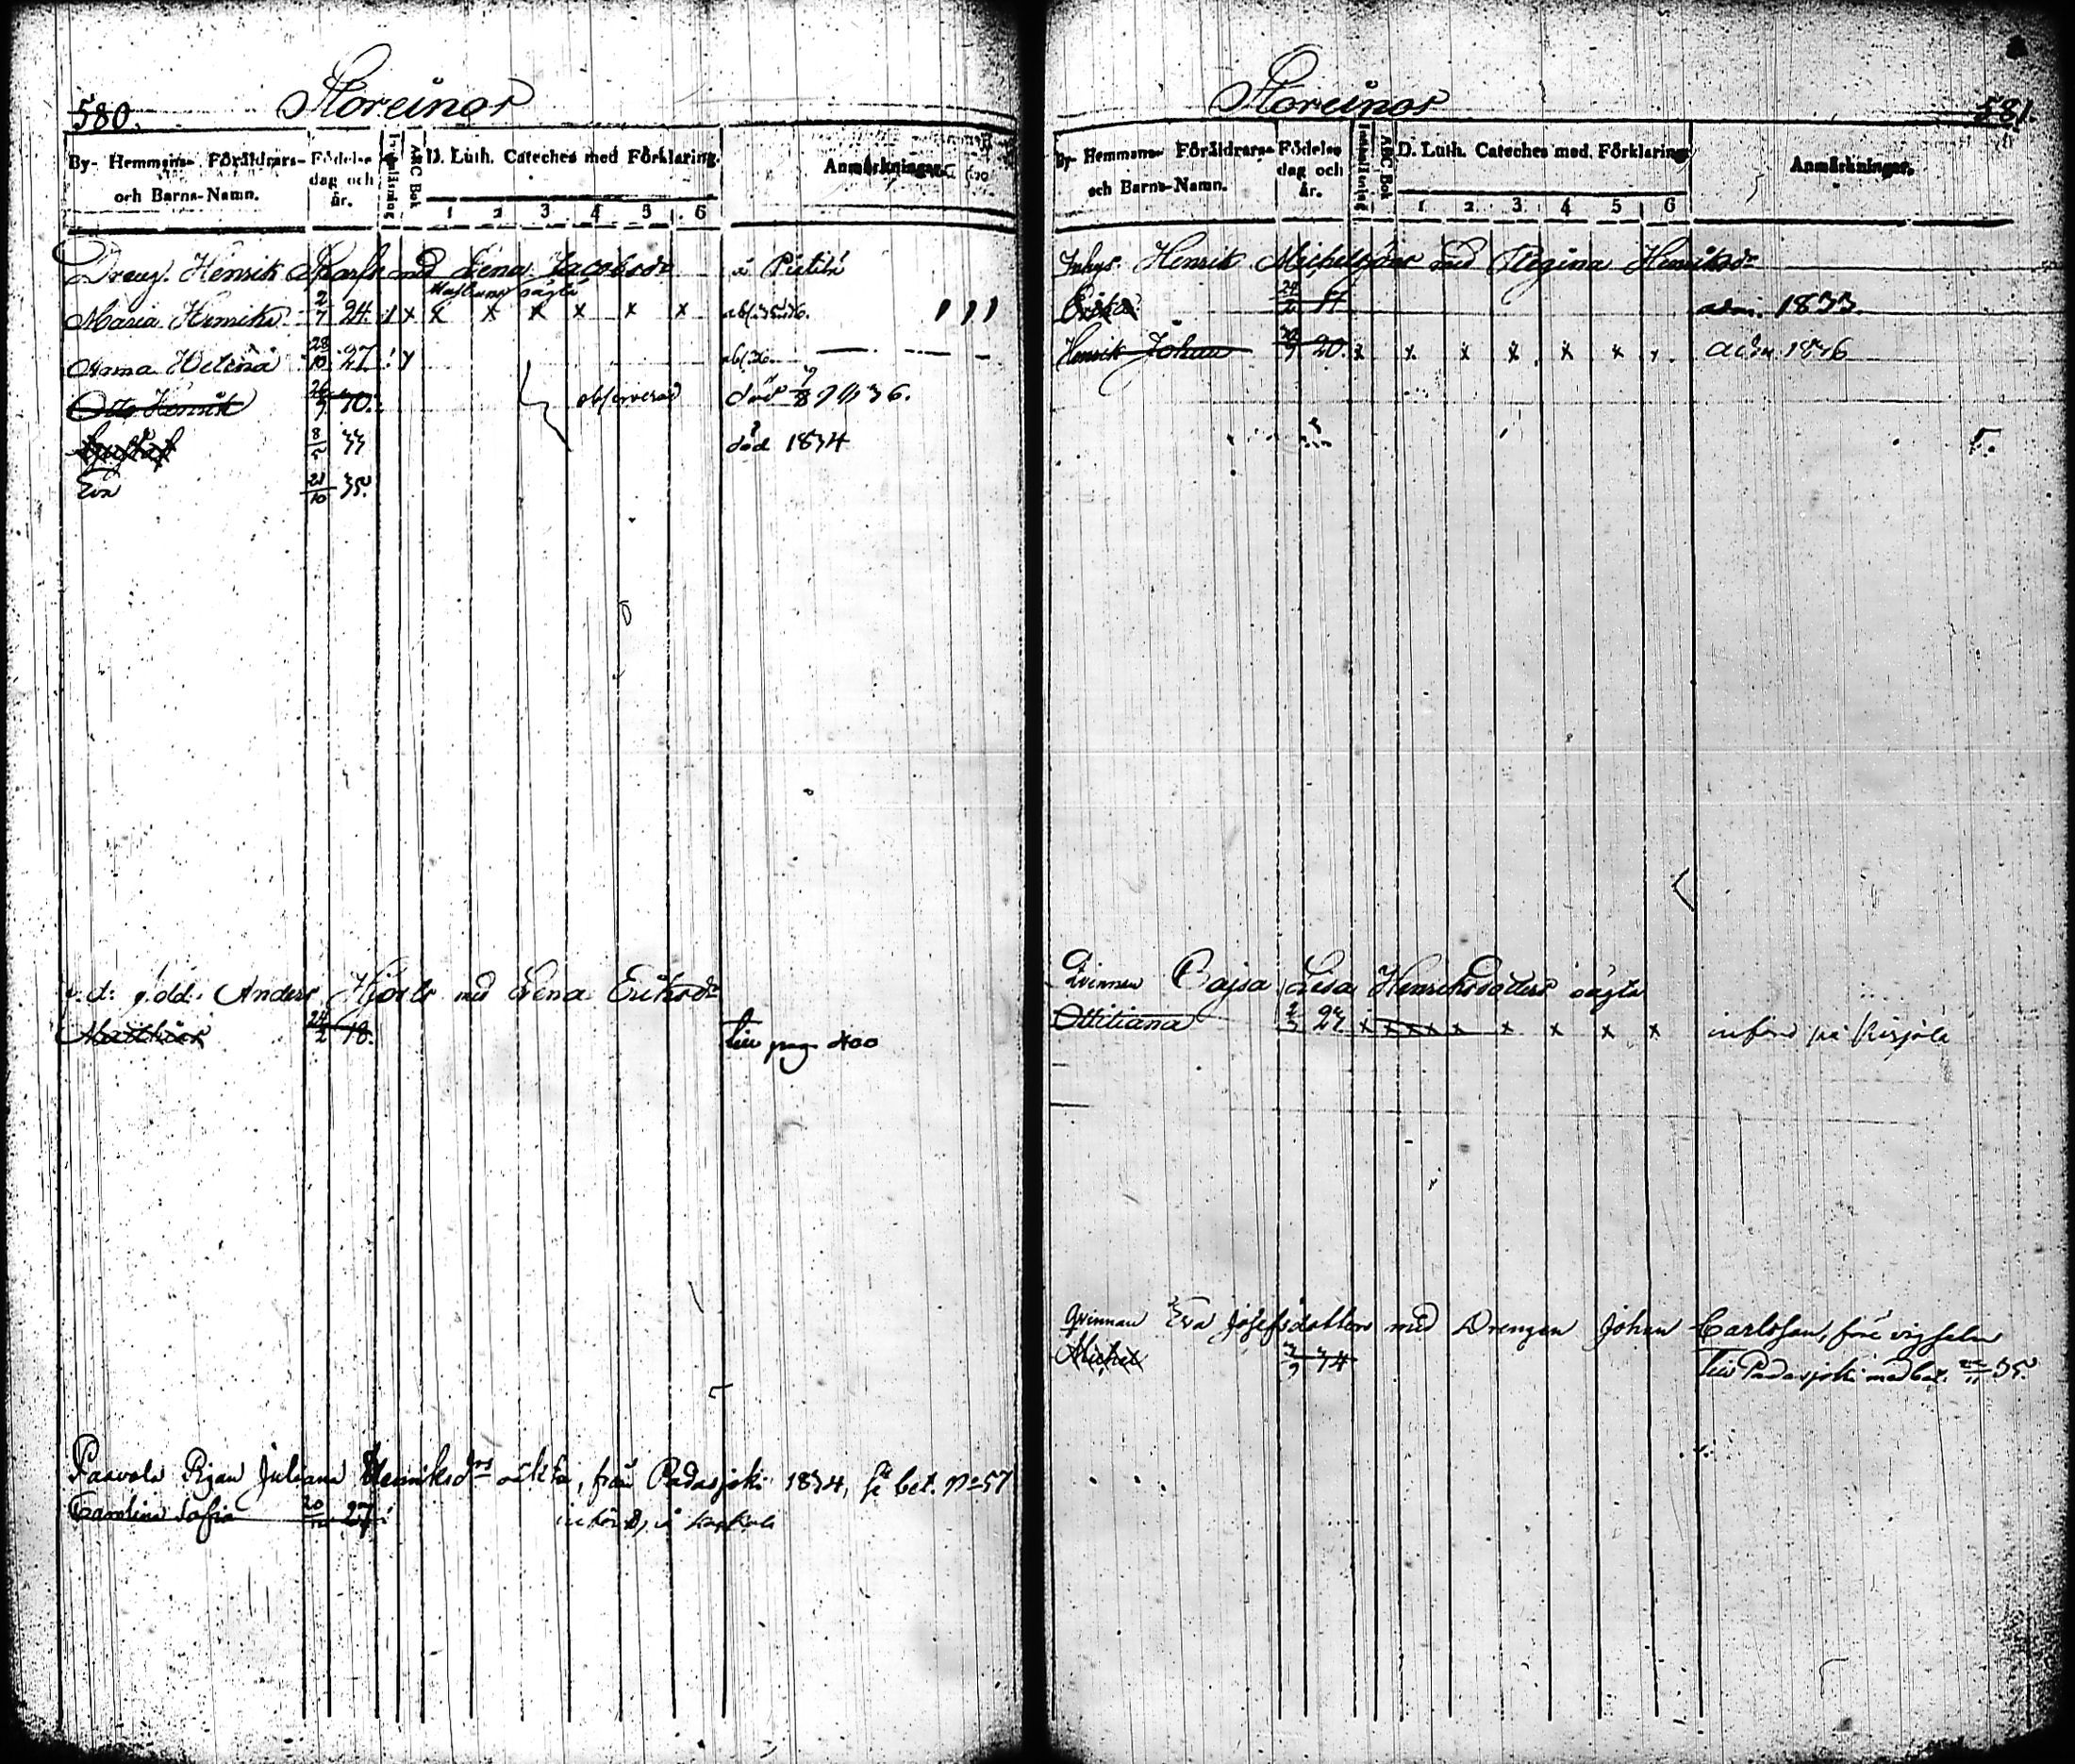 580.
Storeinor
By- Hemmans- Föräldrars- och Barns-Namn.
Födelse dag och år.
Innanläsning
ABC Bok
D. Luth. Cateches med Förklaring.
1 2 3 4 5 6
Anmärkningar.
Henrik Skarp med Lena Jacobsdr å Pietilä
Hustruns oägta
Maria Henriks 2/7 24. 1 x x x x x x x
Anna Helena 28/10 27.
Otto Henrik 26/7 30. observerad död 1836.
Gustaf 8/5 33 död 1834
Eva 21/10 35.
Anders Hjorts med Lena Eriksdr
Mathias 24/2 18. till pag 400
Paavola Pigan Juliana Henriksdrs oäkta, från Padasjoki 1834, se bet. No 57
Carolina Sofia 20/10 27 införd på
Storeinor
581.
By- Hemmans- Föräldrars- och Barns-Namn.
Födelse dag och år.
Innanläsning
ABC Bok
D. Luth. Cateches med Förklaring
1 2 3 4 5 6
Anmärkningar.
Inhys. Henrik Michelsson med Regina Henriksdr
Erika 17 adm. 1833.
Henrik Johan 20. x x x x x x x adm 1836
Qvinnan Cajsa Lisa Henriksdotters oägta
Ottiliana 27 x x x x x x x x x införd på
Qvinnan Eva Josefsdotter med Drengen Johan Carlsson, före vigseln
Michel 34 till Padasjoki med bet. 35.